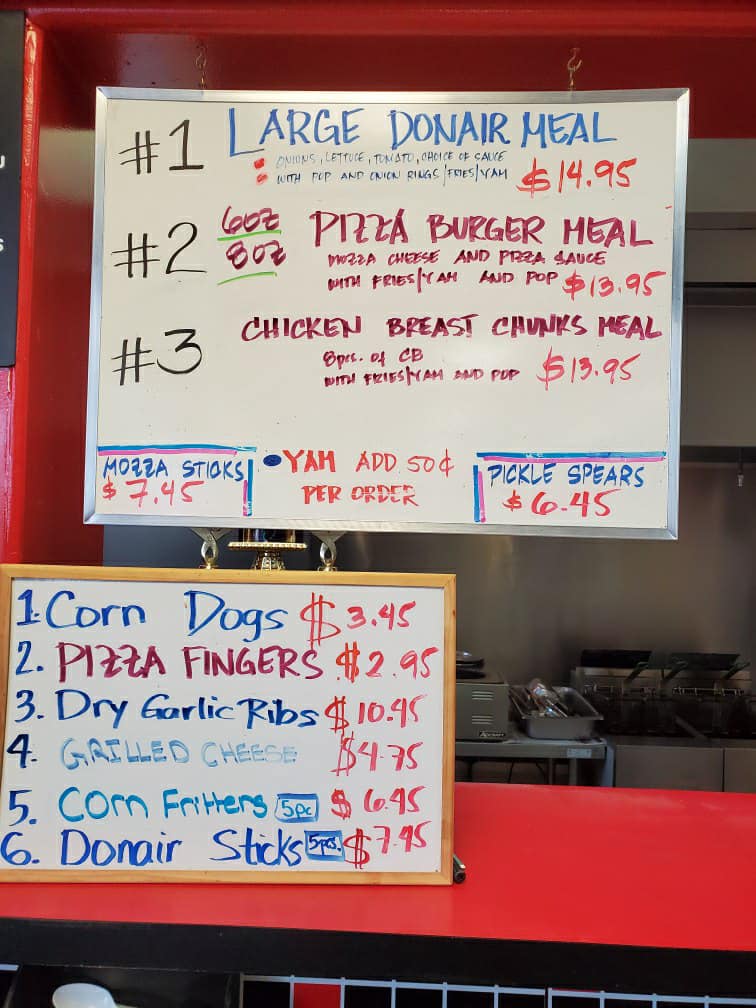 #1 LARGE DONAIR MEAL
ONIONS, LETTUCE, TOMATO, CHOICE OF SAUCE
WITH POP AND ONION RINGS/FRIES/YAM $14.95
#2 6OZ 8OZ PIZZA BURGER MEAL
MOZZA CHEESE AND PIZZA SAUCE
WITH FRIES/YAM AND POP $13.95
#3 CHICKEN BREAST CHUNKS MEAL
8pcs. of CB
WITH FRIES/YAM AND POP $13.95
MOZZA STICKS
$7.45
• YAM ADD 50¢
PER ORDER
PICKLE SPEARS
$6.45
1. Corn Dogs $3.45
2. PIZZA FINGERS $2.95
3. Dry Garlic Ribs $10.45
4. GRILLED CHEESE $4.75
5. Corn Fritters 5pc $6.45
6. Donair Sticks 5pcs. $7.45